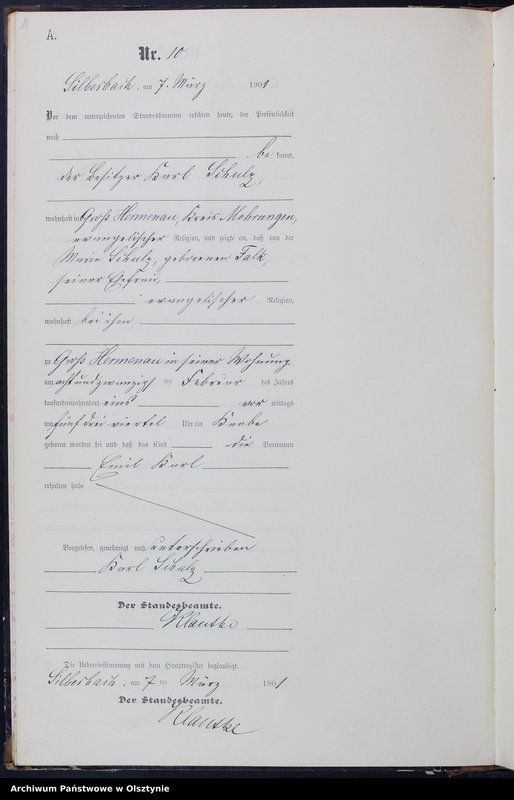 A.
Nr. 10
Silberbach, am 7. März 1901
Vor dem unterzeichneten Standesbeamten erschien heute, der Persönlichkeit
nach
be kannt,
der Besitzer Karl Schulz,
wohnhaft in Groß Hermenau, Kreis Mohrungen,
evangelischer Religion, und zeigte an, daß von der
Marie Schulz, geborenen Falk,
seiner Ehefrau,
evangelischer Religion,
wohnhaft bei ihm,
zu Groß Hermenau in seiner Wohnung
am acht und zwanzigsten Februar des Jahres
tausendneunhundert eins vor mittags
um fünf drei viertel Uhr ein Knabe
geboren worden sei und daß das Kind die Vornamen
Emil Karl
erhalten habe
Vorgelesen, genehmigt und unterschrieben
Karl Schulz
Der Standesbeamte.
Klautke
Die Uebereinstimmung mit dem Hauptregister beglaubigt.
Silberbach, am 7 ten März 1901.
Der Standesbeamte.
Klautke
Archiwum Państwowe w Olsztynie